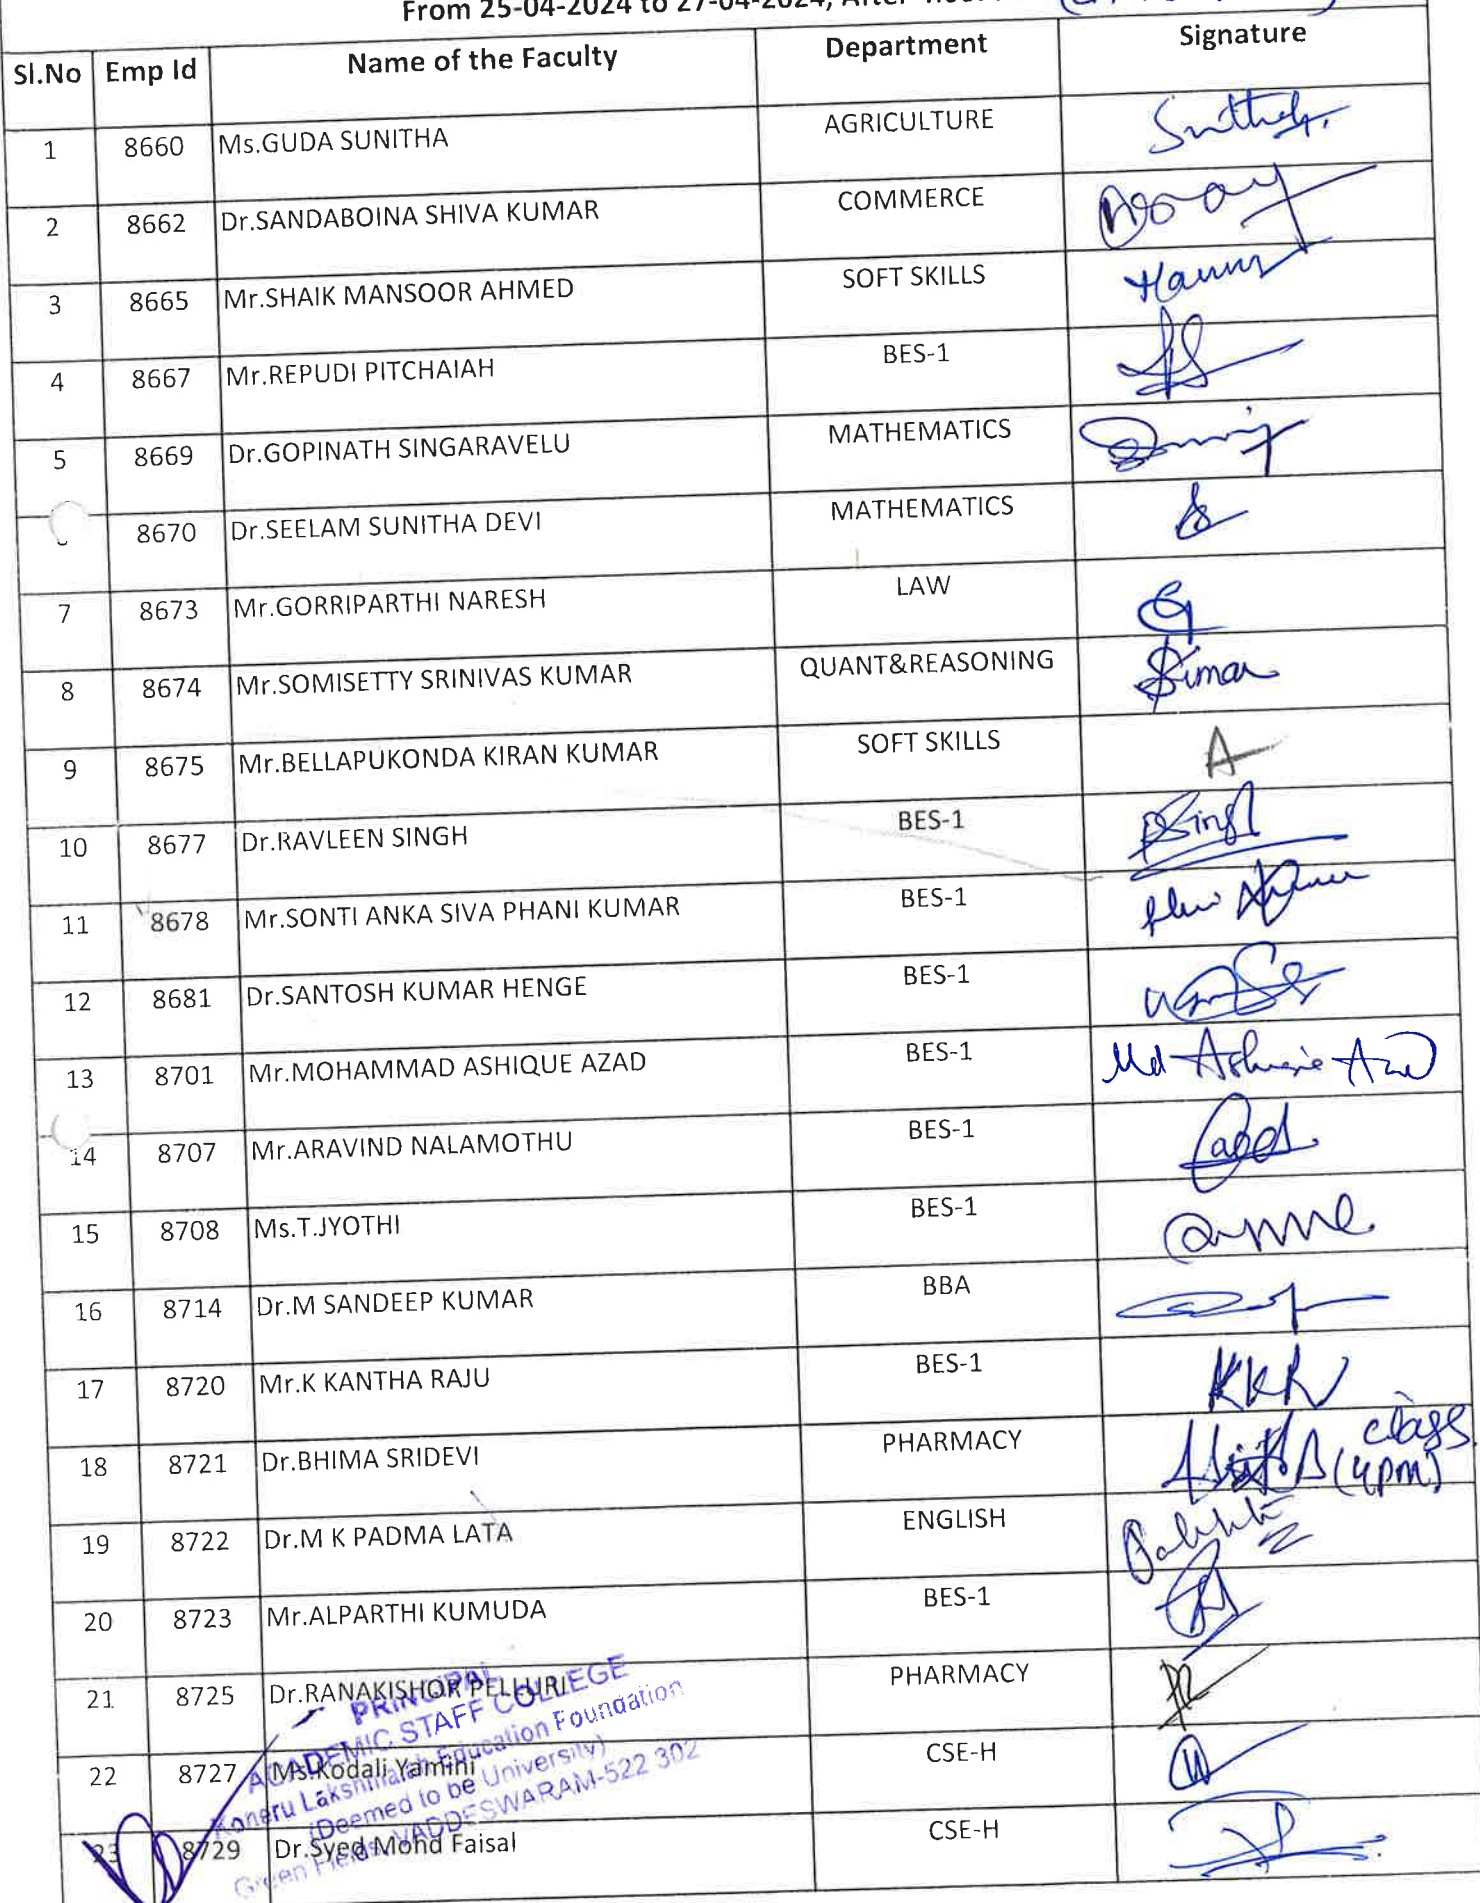 From 25-04-2024 to 27-04-2024, After
Sl.No Emp Id Name of the Faculty Department Signature
1 8660 Ms.GUDA SUNITHA AGRICULTURE
2 8662 Dr.SANDABOINA SHIVA KUMAR COMMERCE
3 8665 Mr.SHAIK MANSOOR AHMED SOFT SKILLS
4 8667 Mr.REPUDI PITCHAIAH BES-1
5 8669 Dr.GOPINATH SINGARAVELU MATHEMATICS
8670 Dr.SEELAM SUNITHA DEVI MATHEMATICS
7 8673 Mr.GORRIPARTHI NARESH LAW
8 8674 Mr.SOMISETTY SRINIVAS KUMAR QUANT&REASONING
9 8675 Mr.BELLAPUKONDA KIRAN KUMAR SOFT SKILLS A
10 8677 Dr.RAVLEEN SINGH BES-1
11 8678 Mr.SONTI ANKA SIVA PHANI KUMAR BES-1
12 8681 Dr.SANTOSH KUMAR HENGE BES-1
13 8701 Mr.MOHAMMAD ASHIQUE AZAD BES-1 Md
14 8707 Mr.ARAVIND NALAMOTHU BES-1
15 8708 Ms.T.JYOTHI BES-1
16 8714 Dr.M SANDEEP KUMAR BBA
17 8720 Mr.K KANTHA RAJU BES-1 KKR
18 8721 Dr.BHIMA SRIDEVI PHARMACY class
(4pm)
19 8722 Dr.M K PADMA LATA ENGLISH
20 8723 Mr.ALPARTHI KUMUDA BES-1
21 8725 Dr.RANAKISHOR PELLURI PHARMACY
22 8727 Ms.Kodali Yamini CSE-H
23 8729 Dr.Syed Mohd Faisal CSE-H
PRINCIPAL
ACADEMIC STAFF COLLEGE
Koneru Lakshmaiah Education Foundation
(Deemed to be University)
Green Fields, VADDESWARAM-522 302